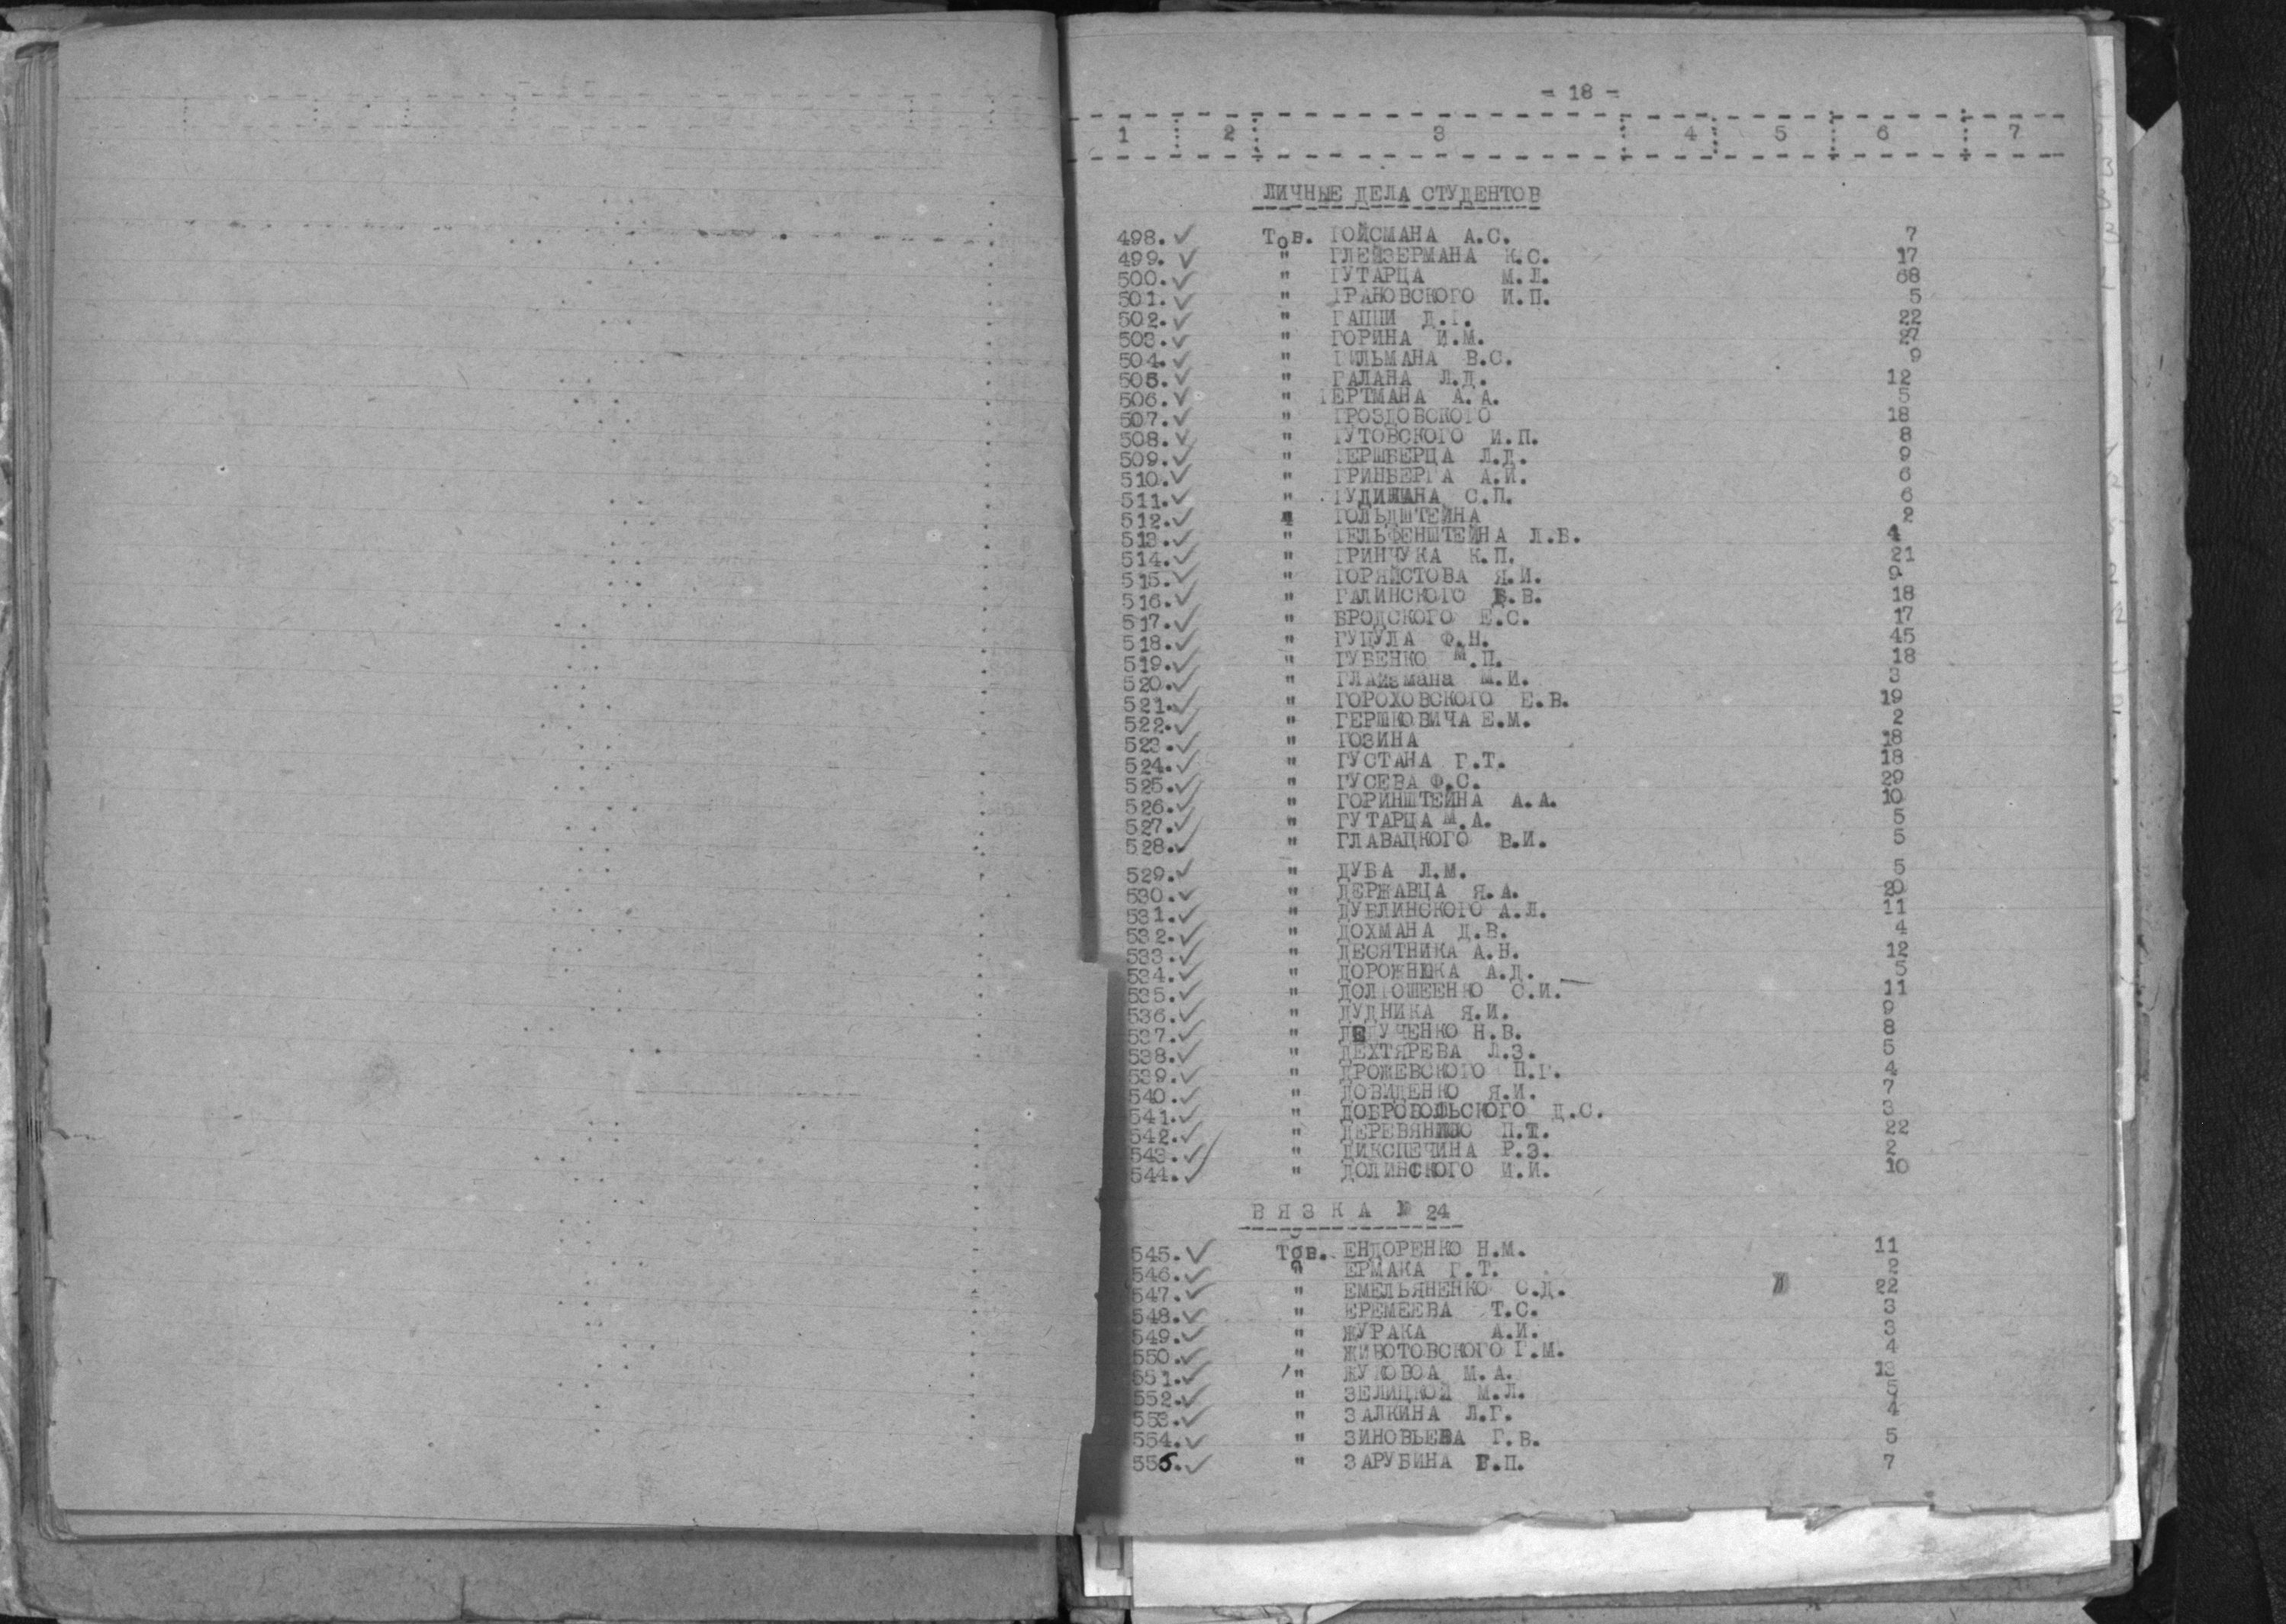 - 18 -
1 2 3 4 5 6 7
ЛИЧНЫЕ ДЕЛА СТУДЕНТОВ
498. ✓ Тов. ГОЙСМАНА А.С. 7
499. ✓ " ГЛЕЙЗЕРМАНА К.С. 17
500. ✓ " ГУТАРЦА М.Л. 68
501. ✓ " ГРАНОВСКОГО И.П. 5
502. ✓ " ГАППИ Д.Г. 22
503. ✓ " ГОРИНА И.М. 27
504. ✓ " ГИЛЬМАНА В.С. 9
505. ✓ " ГАЛАНА Л.Д. 12
506. ✓ " ГЕРТМАНА А.А. 5
507. ✓ " ГРОЗДОВСКОГО 18
508. ✓ " ГУТОВСКОГО И.П. 8
509. ✓ " ГЕРШБЕРЦА Л.Д. 9
510. ✓ " ГРИНБЕРГА А.И. 6
511. ✓ " ГУДИМАНА С.П. 6
512. ✓ " ГОЛЬДШТЕЙНА 2
513. ✓ " ГЕЛЬФЕНШТЕЙНА Л.В. 4
514. ✓ " ГРИНЧУКА К.П. 21
515. ✓ " ГОРЯЙСТОВА Я.И. 9
516. ✓ " ГАЛИНСКОГО В.В. 18
517. ✓ " БРОДСКОГО Е.С. 17
518. ✓ " ГУЦУЛА Ф.Н. 45
519. ✓ " ГУБЕНКО М.П. 18
520. ✓ " ГЛАЙзмана М.И. 3
521. ✓ " ГОРОХОВСКОГО Е.В. 19
522. ✓ " ГЕРШКОВИЧА Е.М. 2
523. ✓ " ГОЗИНА 18
524. ✓ " ГУСТАНА Г.Т. 18
525. ✓ " ГУСЕВА Ф.С. 29
526. ✓ " ГОРИНШТЕЙНА А.А. 10
527. ✓ " ГУТАРЦА М.А. 5
528. ✓ " ГЛАВАЦКОГО В.И. 5
529. ✓ " ДУБА Л.М. 5
530. ✓ " ДЕРЖАВЦА Я.А. 20
531. ✓ " ДУБЛИНСКОГО А.Л. 11
532. ✓ " ДОХМАНА Д.В. 4
533. ✓ " ДЕСЯТНИКА А.Н. 12
534. ✓ " ДОРОЖНЮКА А.Д. 5
535. ✓ " ДОЛГОШЕЕНКО С.И. 11
536. ✓ " ДУДНИКА Я.И. 9
537. ✓ " ДЕГУЧЕНКО Н.В. 8
538. ✓ " ДЕХТЯРЕВА Л.З. 5
539. ✓ " ДРОЖЕВСКОГО П.Г. 4
540. ✓ " ДОВИДЕНКО Я.И. 7
541. ✓ " ДОБРОВОЛЬСКОГО Д.С. 3
542. ✓ " ДЕРЕВЯНКО П.Т. 22
543. ✓ " ДИКСПЕЧИНА Р.З. 2
544. ✓ " ДОЛИНСКОГО И.И. 10
ВЯЗКА № 24
545. ✓ Тов. ЕНДОРЕНКО Н.М. 11
546. ✓ " ЕРМАКА Г.Т. 2
547. ✓ " ЕМЕЛЬЯНЕНКО С.Д. 22
548. ✓ " ЕРЕМЕЕВА Т.С. 3
549. ✓ " ЖУРАКА А.И. 3
550. ✓ " ЖИВОТОВСКОГО Г.М. 4
551. ✓ " ЖУКОВОА М.А. 13
552. ✓ " ЗЕЛИЦКОЙ М.Л. 5
553. ✓ " ЗАЛКИНА Л.Г. 4
554. ✓ " ЗИНОВЬЕВА Г.В. 5
555. ✓ " ЗАРУБИНА Е.П. 7